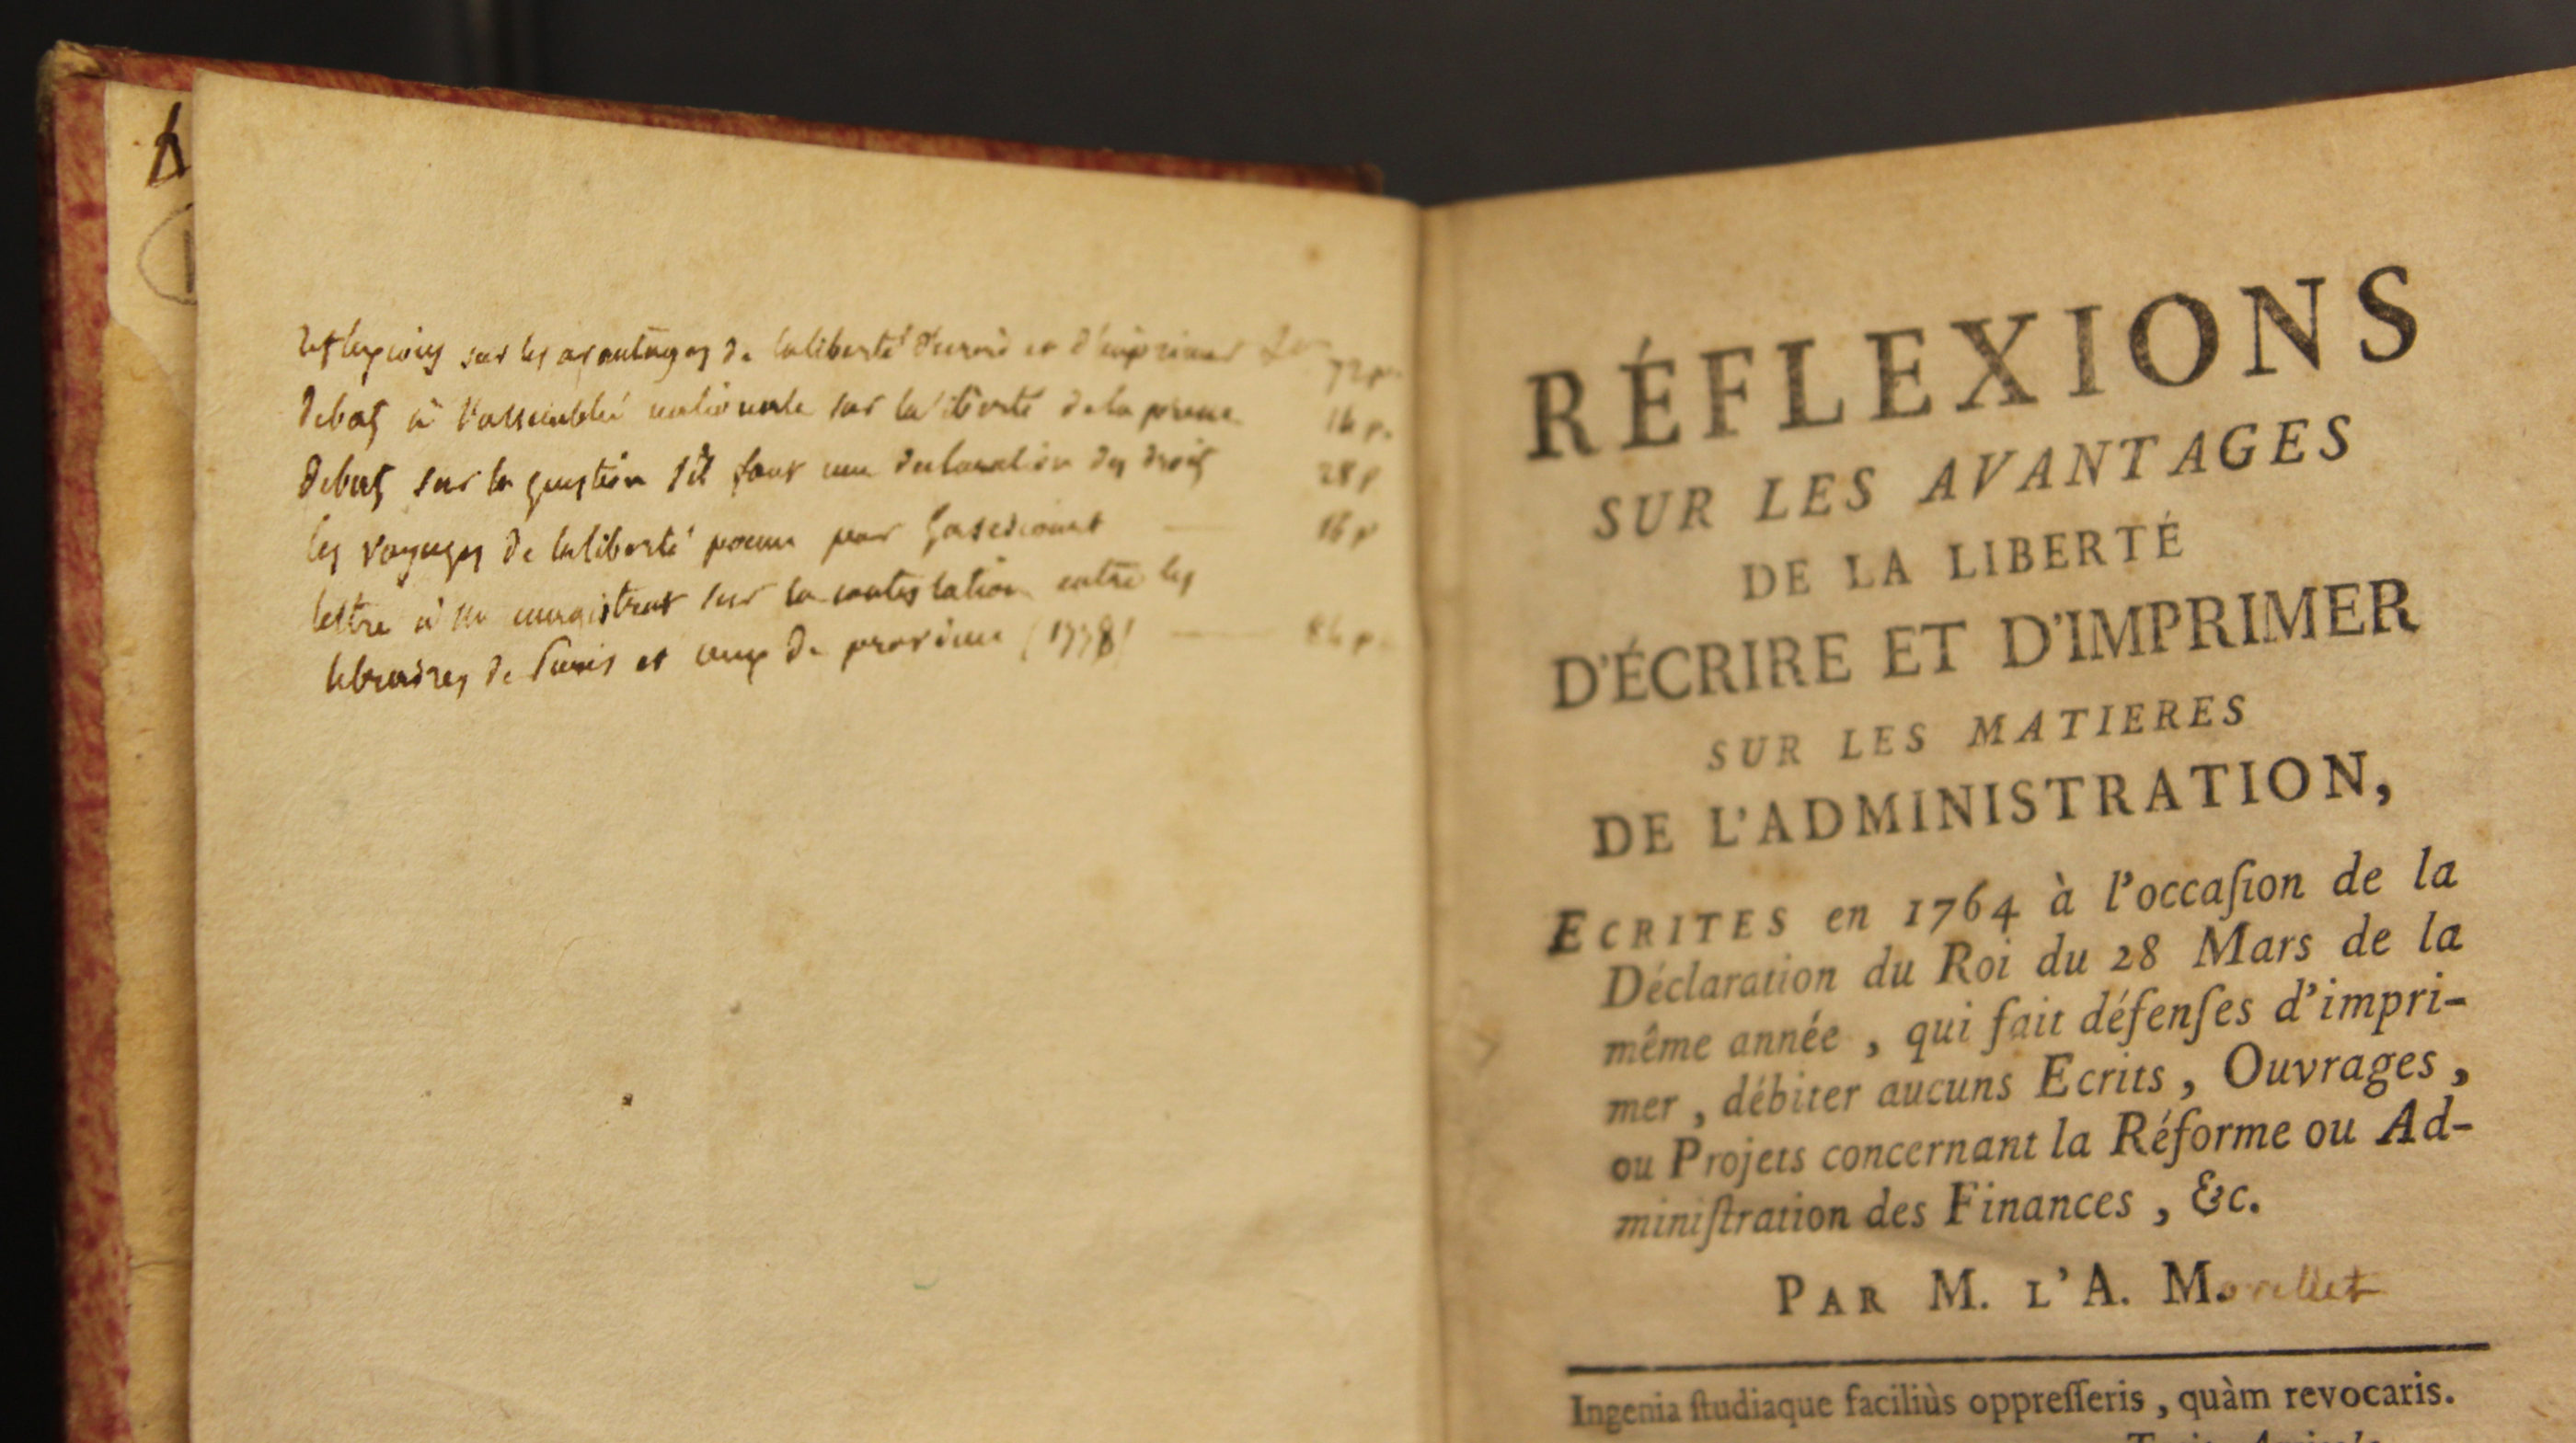 reflexions sur les avantages de la liberté d'ecrire et d'imprimer 72 p.
debats à l'assemblée nationale sur la liberté de la presse 16 p.
debats sur la question s'il faut une declaration des droits 28 p
les voyages de la liberté poeme par Gassicourt — 16 p
lettre à un magistrat sur la contestation entre les
libraires de Paris et ceux de province (1778) — p.
RÉFLEXIONS
SUR LES AVANTAGES
DE LA LIBERTÉ
D'ÉCRIRE ET D'IMPRIMER
SUR LES MATIERES
DE L'ADMINISTRATION,
ECRITES en 1764 à l'occaſion de la
Déclaration du Roi du 28 Mars de la
même année, qui fait défenſes d'impri-
mer, débiter aucuns Ecrits, Ouvrages,
ou Projets concernant la Réforme ou Ad-
miniſtration des Finances, &c.
PAR M. L'A. M.orellet
Ingenia ſtudiaque faciliùs oppreſſeris, quàm revocaris.